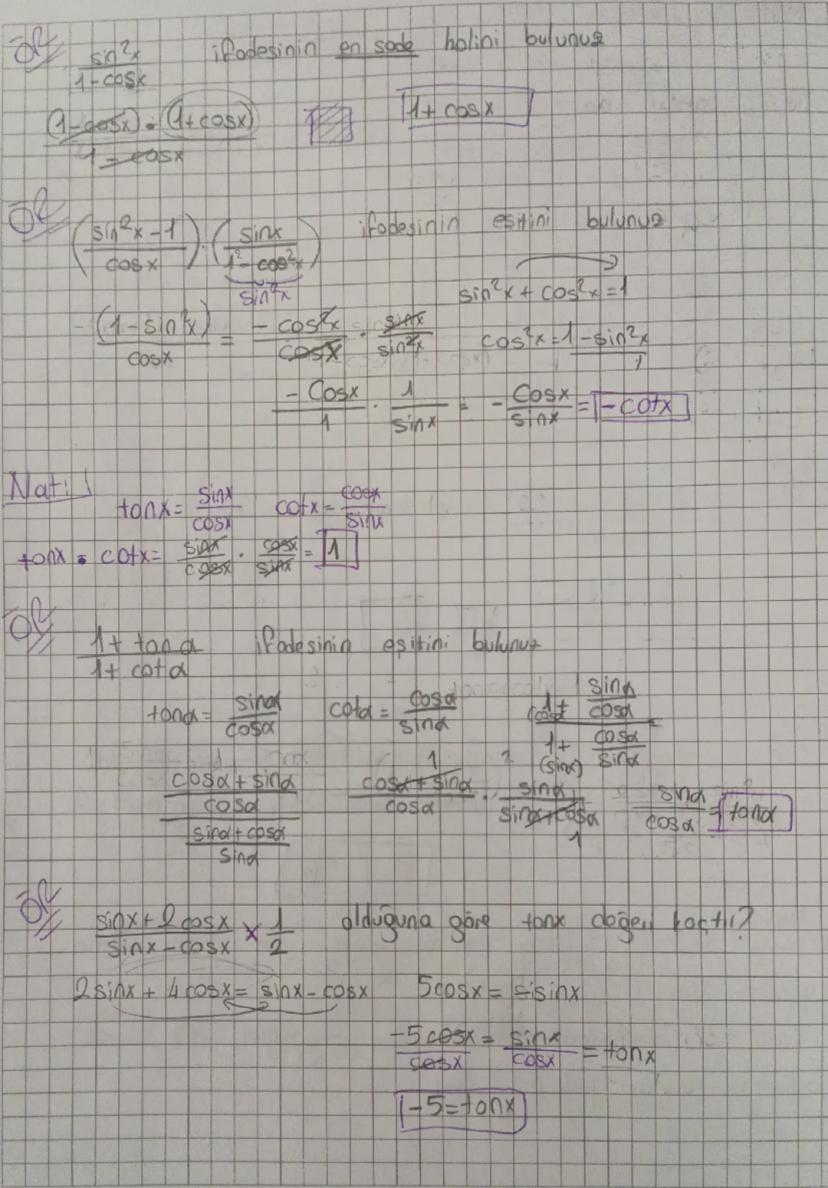 ÖR sin²x / 1-cosx ifadesinin en sade halini bulunuz
(1-cosx).(1+cosx) / 1-cosx 1+cosx
ÖR (sin²x-1 / cosx).(sinx / 1²-cos²x) ifadesinin eşitini bulunuz
sin²x
sin²x+cos²x=1
-(1-sin²x) / cosx = -cos²x / cosx . sinx / sin²x cos²x=1-sin²x / 1
-Cosx / 1 . 1 / sinx = -Cosx / sinx = -cotx
Not!
tanx= sinx / cosx cotx= cosx / sinx
tanx . cotx= sinx / cosx . cosx / sinx = 1
ÖR 1+tanα / 1+cotα ifadesinin eşitini bulunuz
tanα= sinα / cosα cotα= cosα / sinα 1+ sinα / cosα
(cosα)
1+ cosα / sinα
(sinα)
cosα+sinα / cosα cosα+sinα / cosα . sinα / sinα+cosα sinα / cosα = tanα
1
1
sinα+cosα / sinα
ÖR sinx+2cosx / sinx-cosx x 1 / 2 olduğuna göre tanx değeri kaçtır?
2sinx+4cosx= sinx-cosx 5cosx= -sinx
-5cosx / cosx = sinx / cosx = tanx
-5=tanx